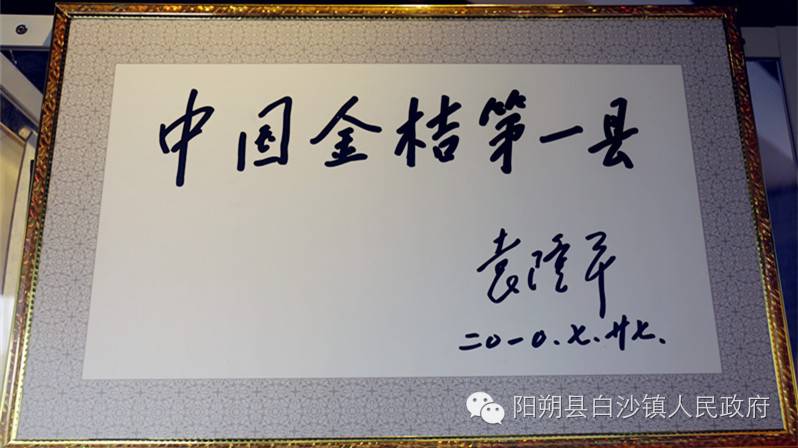 中国金桔第一县
袁隆平
二〇一〇.七.廿七.
阳朔县白沙镇人民政府